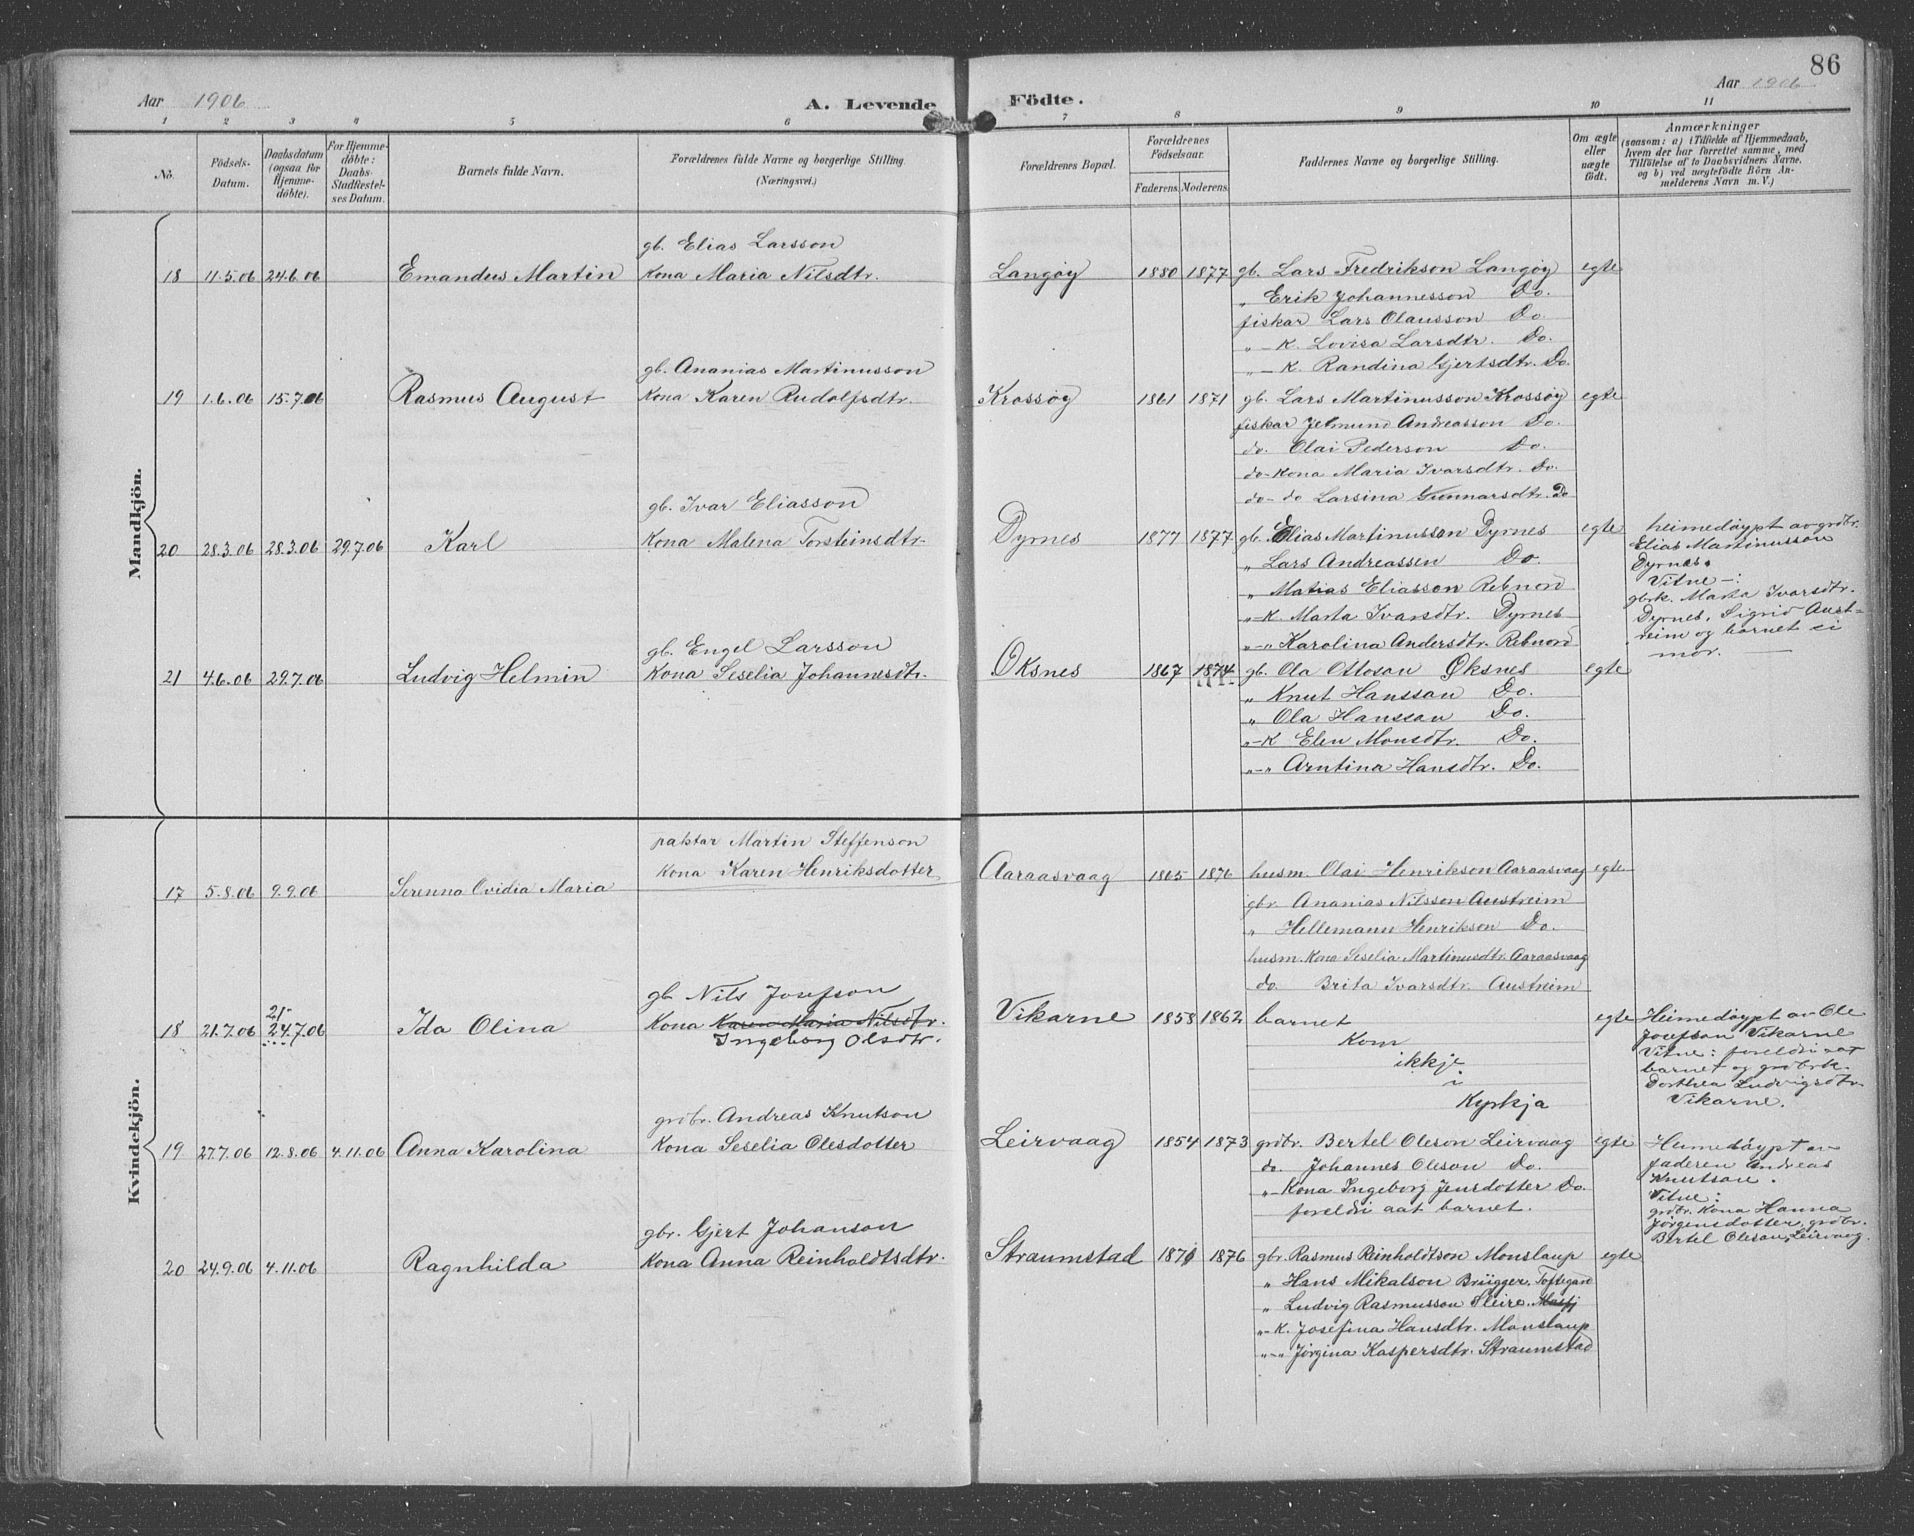 86
Aar 1906
A. Levende Födte.
Aar 1906
1 2 3 4 5 6 7 8 9 10 11
No.
Födsels-Datum.
Daabsdatum (ogsaa for Hjemme-döbte).
For Hjemme-döbte: Daabs-Stadfæstel-ses Datum.
Barnets fulde Navn.
Forældrenes fulde Navne og borgerlige Stilling.
(Næringsvei.)
Forældrenes Bopæl.
Forældrenes Födselsaar.
Faderens. Moderens.
Faddernes Navne og borgerlige Stilling.
Om ægte eller uægte födt.
Anmærkninger
(saasom: a) i Tilfælde af Hjemmedaab,
hvem der har forrettet samme, med
Tilföielse af to Daabsvidners Navne.
og b) ved uægtefödte Börn An-
melderens Navn m. V.)
Mandkjön.
gb. Elias Larsson
18 11.5.06 24.6.06 Emandus Martin Kona Maria Nilsdtr. Langøy 1880 1877 gb. Lars Fredrikson Langøy egte
„ Erik Johannesson Do.
fiskar Lars Olausson Do.
„-K. Lovisa Larsdtr. Do.
„-K. Randina Gjertsdtr. Do.
gb. Ananias Martinusson
19 1.6.06 15.7.06 Rasmus August Kona Karen Rudolfsdtr. Krossøy 1861 1871 gb. Lars Martinusson Krossøy egte
fiskar Jetmund Andreasson Do.
do. Olai Pederson Do.
do-Kona Maria Ivarsdtr. Do.
do-do Larsina Gunnarsdtr. Do
gb. Ivar Eliasson
20 28.3.06 28.3.06 29.7.06 Karl Kona Malena Torsteinsdtr. Dyrnes 1877 1877 gb. Elias Martinusson Dyrnes egte
„ Lars Andreassen Do.
„ Matias Eliasson Rebnord
„-K. Marta Ivarsdtr. Dyrnes
„-„ Karolina Andersdtr. Rebnord
heimedøypt av grdbr.
Elias Martinusson
Dyrnes.
Vitne-:
gbrk. Marta Ivarsdtr.
Dyrnes, Sigrid Aust-
reim og barnet si
mor.
gb. Engel Larsson
21 4.6.06 29.7.06 Ludvig Helmin Kona Seselia Johannesdtr. Oksnes 1867 1874 gb. Ola Ottoson Øksnes egte
„ Knut Hansson Do.
„ Ola Hansson Do.
„-K Elen Monsdtr. Do.
„-„ Arntina Hansdtr. Do.
Kvindekjön.
paktar Martin Steffenson
17 5.8.06 9.9.06 Serenna Ovidia Maria Kona Karen Henriksdotter Aaraasvaag 1865 1876 husm. Olai Henrikson Aaraasvaag egte
gbr. Ananias Nilssen Austreim
„ Hellemann Henrikson Do.
husm. Kona Seselia Martinusdtr. Aaraasvaag
do Brita Ivarsdtr. Austreim
gb Nils Josefson
21-
18 21.7.06 24.7.06 Ida Olina Kona Karen Maria Nilsdtr. Vikarne 1858 1862 barnet egte
Ingeborg Olsdtr.
Kom
ikkje
i
Kyrkja
Heimedøypt av Ole
Josefson Vikarne
Vitne: foreldri aat
barnet og grdbrk.
Dorthea Ludvigsdtr.
Vikarne.
grdbr. Andreas Knutson
19 27.7.06 12.8.06 4.11.06 Anna Karolina Kona Seselia Olesdotter Leirvaag 1854 1873 grdbr. Bertel Oleson Leirvaag egte
do. Johannes Oleson Do.
„-Kona Ingeborg Jensdotter Do.
foreldri aat barnet.
Heimedøypt av
faderen Andreas
Knutson.
Vitne:
grdbr. Kona Hanna
Jørgensdotter, grdbr.
Bertel Oleson, Leirvaag.
gbr. Gjert Johanson
20 24.9.06 4.11.06 Ragnhilda Kona Anna Reinholdtsdtr. Straumstad 1876 gbr. Rasmus Reinholdtson Monslaup egte
„ Hans Mikalson Brügger, Toftegard
„ Ludvig Rasmusson Sleire.
„-K. Josefina Hansdtr. Monslaup
„-„ Jørgina Kaspersdtr. Straumstad